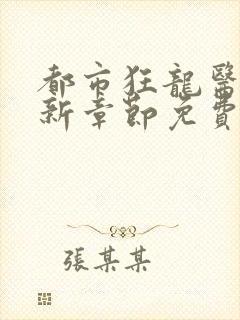 都市狂龍醫
新章節免費
張某某